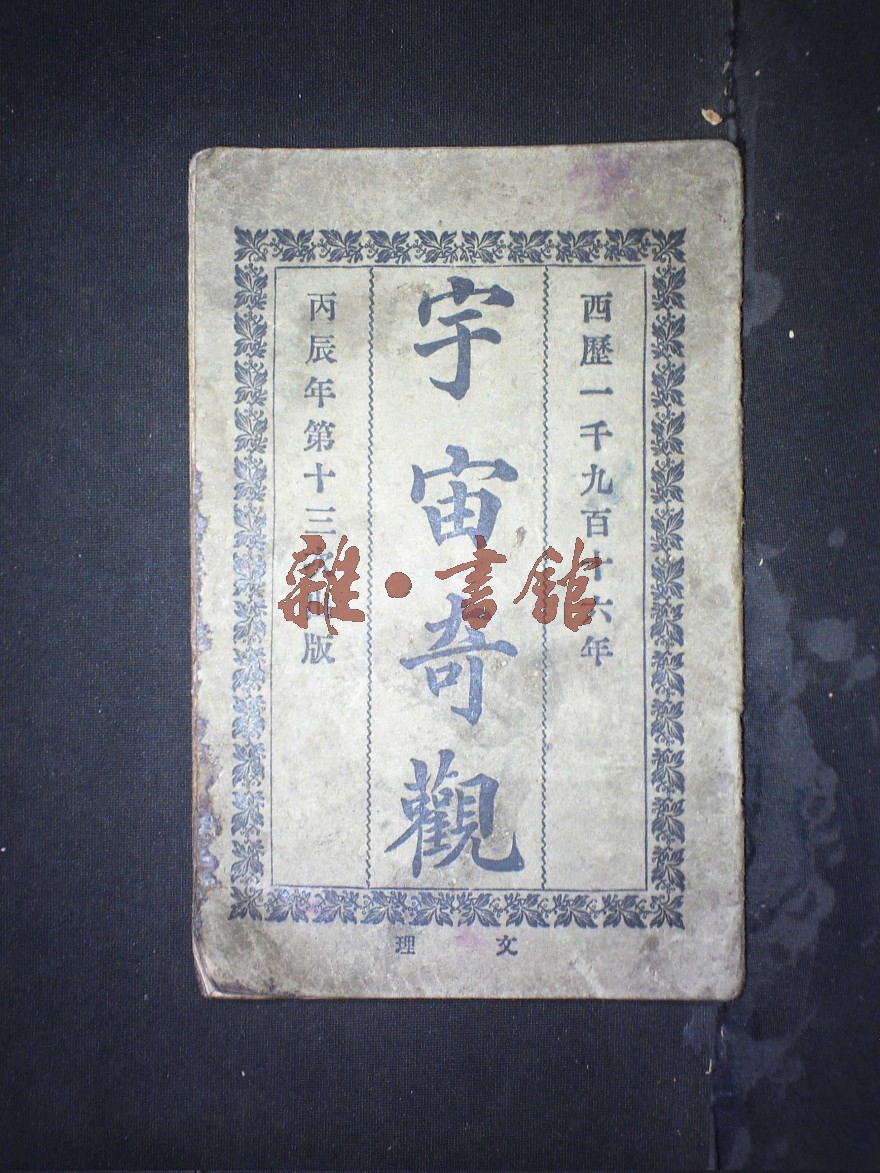 西歷一千九百十六年
宇宙奇觀
丙辰年第十三次出版
文理
雜·書館